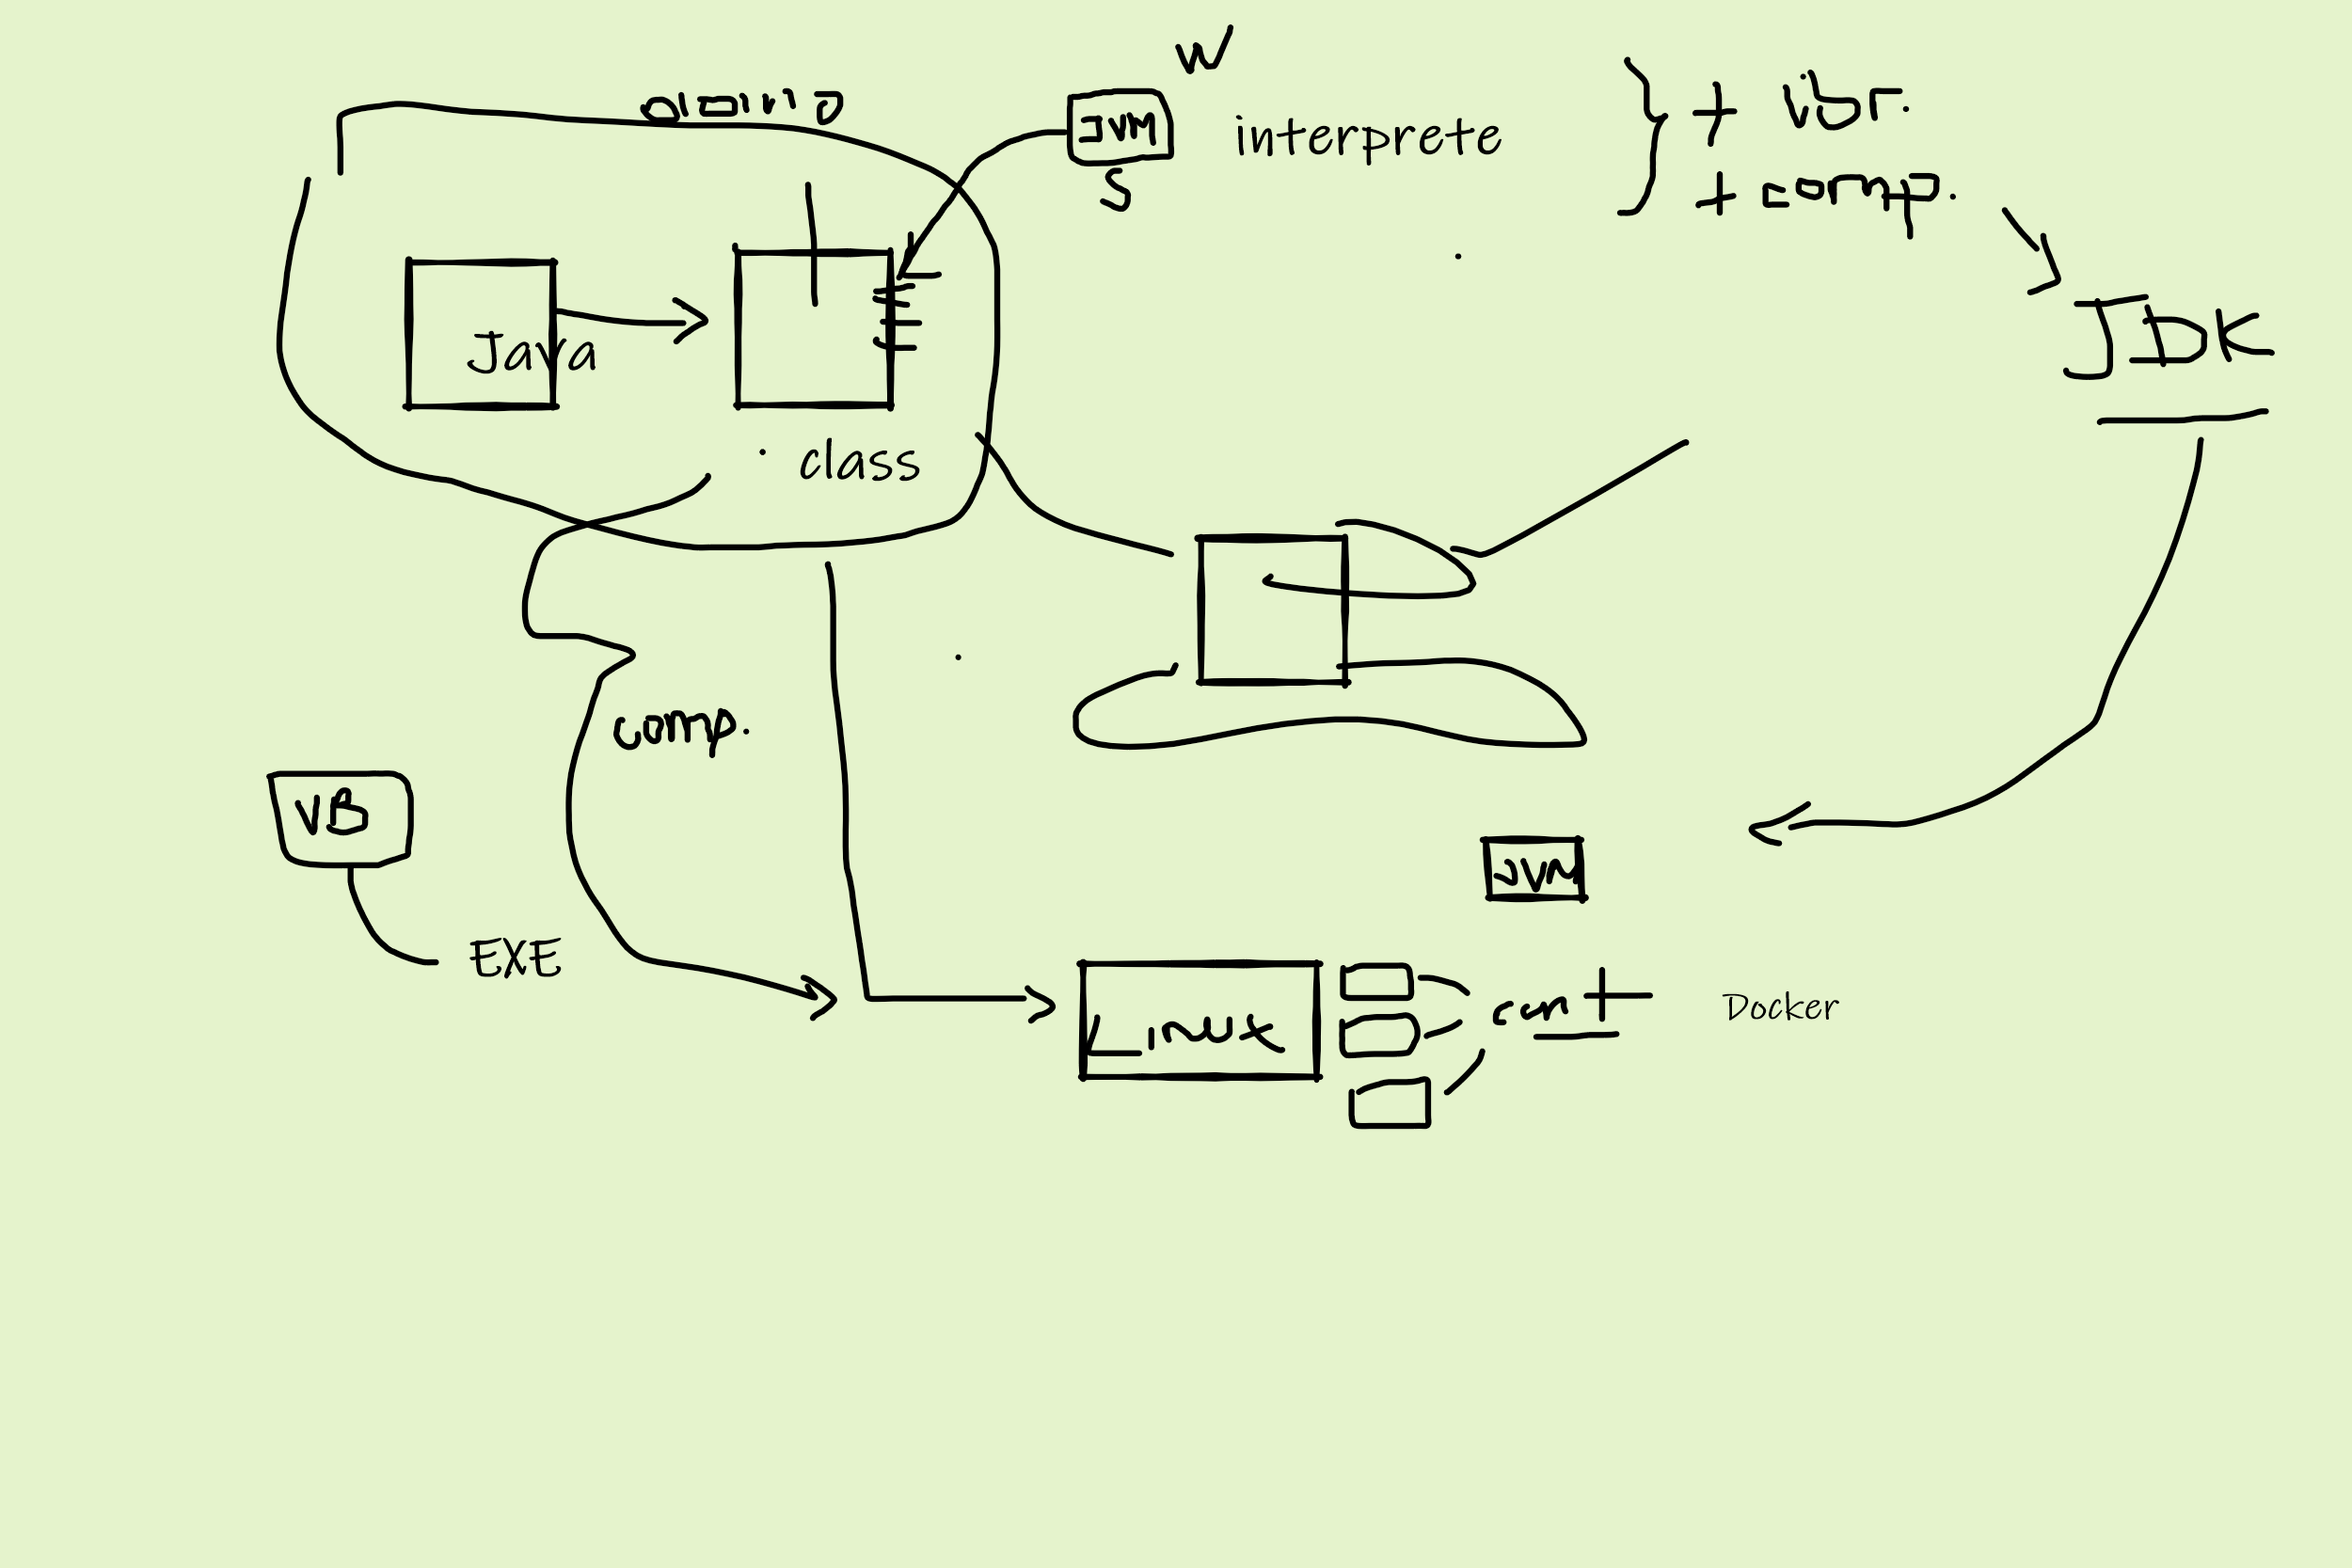 W
JVM
interprete
S
+ libr.
+ comp.
JDK
Java
. class
comp.
VB
EXE
JVM
Linux
cont
Docker